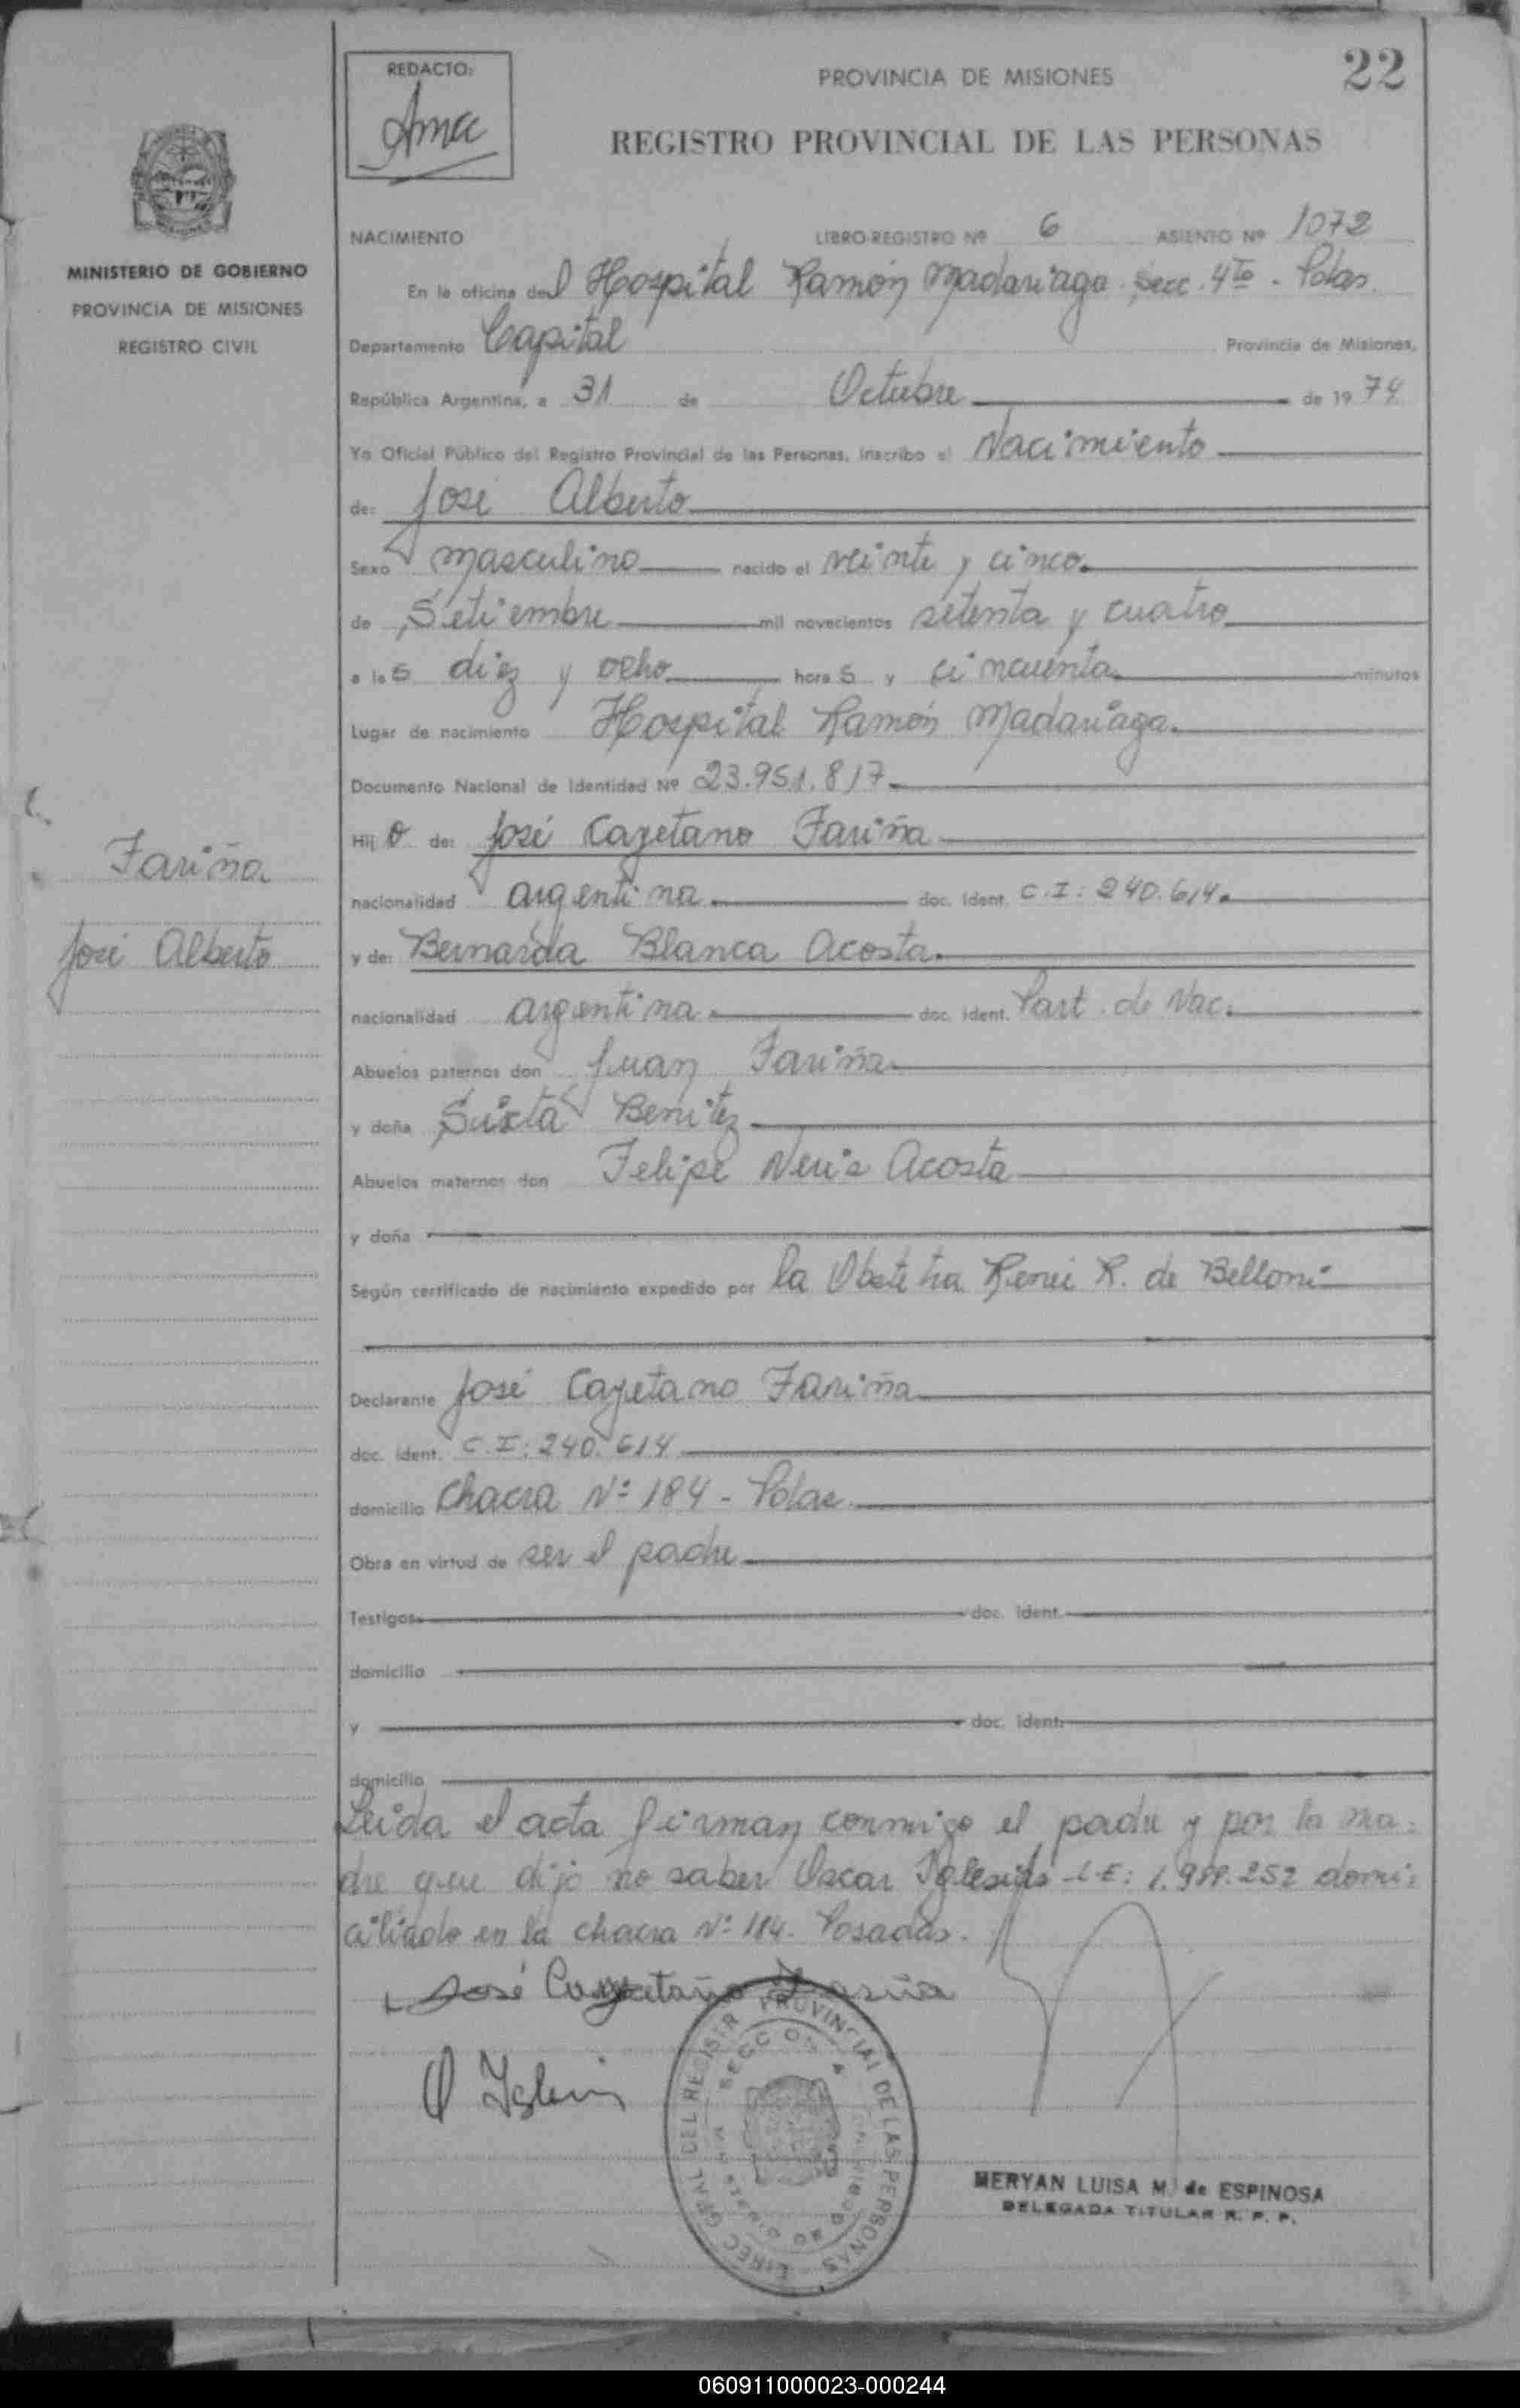 22
REDACTO:
PROVINCIA DE MISIONES
REGISTRO PROVINCIAL DE LAS PERSONAS
MINISTERIO DE GOBIERNO
PROVINCIA DE MISIONES
REGISTRO CIVIL
NACIMIENTO LIBRO-REGISTRO Nº 6 ASIENTO Nº 1072
En la oficina del Hospital Ramón Madariaga Secc. 4ta - Pdas.
Departamento Capital Provincia de Misiones,
República Argentina, a 31 de Octubre de 1974
Yo Oficial Público del Registro Provincial de las Personas, inscribo el Nacimiento
de: José Alberto
Sexo masculino nacido el veinte y cinco
de Setiembre mil novecientos setenta y cuatro
a las diez y ocho horas y cincuenta minutos
Lugar de nacimiento Hospital Ramón Madariaga.
Documento Nacional de Identidad Nº 23.951.817
Hijo de: José Cayetano Fariña
nacionalidad argentina doc. ident. C.I: 240.614
y de: Bernarda Blanca Acosta.
nacionalidad argentina doc. ident. Part. de Nac.
Abuelos paternos don Juan Fariña
y doña Sixta Benitez
Abuelos maternos don Felipe Neris Acosta
y doña
Según certificado de nacimiento expedido por la Obstetra Renei R. de Belloni
Declarante José Cayetano Fariña
doc. ident. C.I: 240.614
domicilio Chacra Nº 184 - Pdas
Obra en virtud de ser el padre
Testigos doc. ident.
domicilio
y doc. ident.
domicilio
Leida el acta firman conmigo el padre y por la ma-
dre que dijo no saber Oscar Iglesias L.E: domi-
ciliado en la chacra Nº 184. Posadas.
Fariña
José Alberto
José Cayetano Fariña
O Iglesi
DIREC GRAL DEL REGISTR PROVINCIAL DE LAS PERSONAS
SECCION 4
MERYAN LUISA M. de ESPINOSA
DELEGADA TITULAR R. P. P.
060911000023-000244